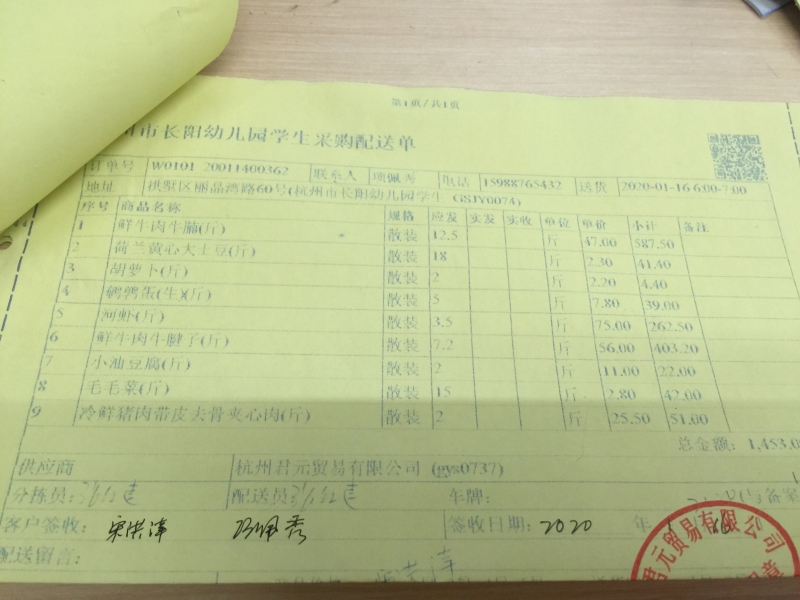 第1页/共1页
州市长阳幼儿园学生采购配送单
订单号 W0101 20011400362 联系人 佩秀 电话 15988765432 送货 2020-01-16 6:00-7:00
地址 拱墅区丽晶湾路60号(杭州市长阳幼儿园学生 GSJY0074)
序号 商品名称 规格 应发 实发 实收 单位 单价 小计 备注
1 鲜牛肉牛腩(斤) 散装 12.5 斤 47.00 587.50
2 荷兰黄心大土豆(斤) 散装 18 斤 2.30 41.40
3 胡萝卜(斤) 散装 2 斤 2.20 4.40
4 鹌鹑蛋(生)(斤) 散装 5 斤 7.80 39.00
5 河虾(斤) 散装 3.5 斤 75.00 262.50
6 鲜牛肉牛腱子(斤) 散装 7.2 斤 56.00 403.20
7 小油豆腐(斤) 散装 2 斤 11.00 22.00
8 毛毛菜(斤) 散装 15 斤 2.80 42.00
9 冷鲜猪肉带皮去骨夹心肉(斤) 散装 2 斤 25.50 51.00
总金额: 1,453.0
供应商 杭州君元贸易有限公司 (gys0737)
分拣员: 配送员 车牌:
客户签收: 佩秀 签收日期: 2020 年 1
配送留言:
君元贸易有限公司